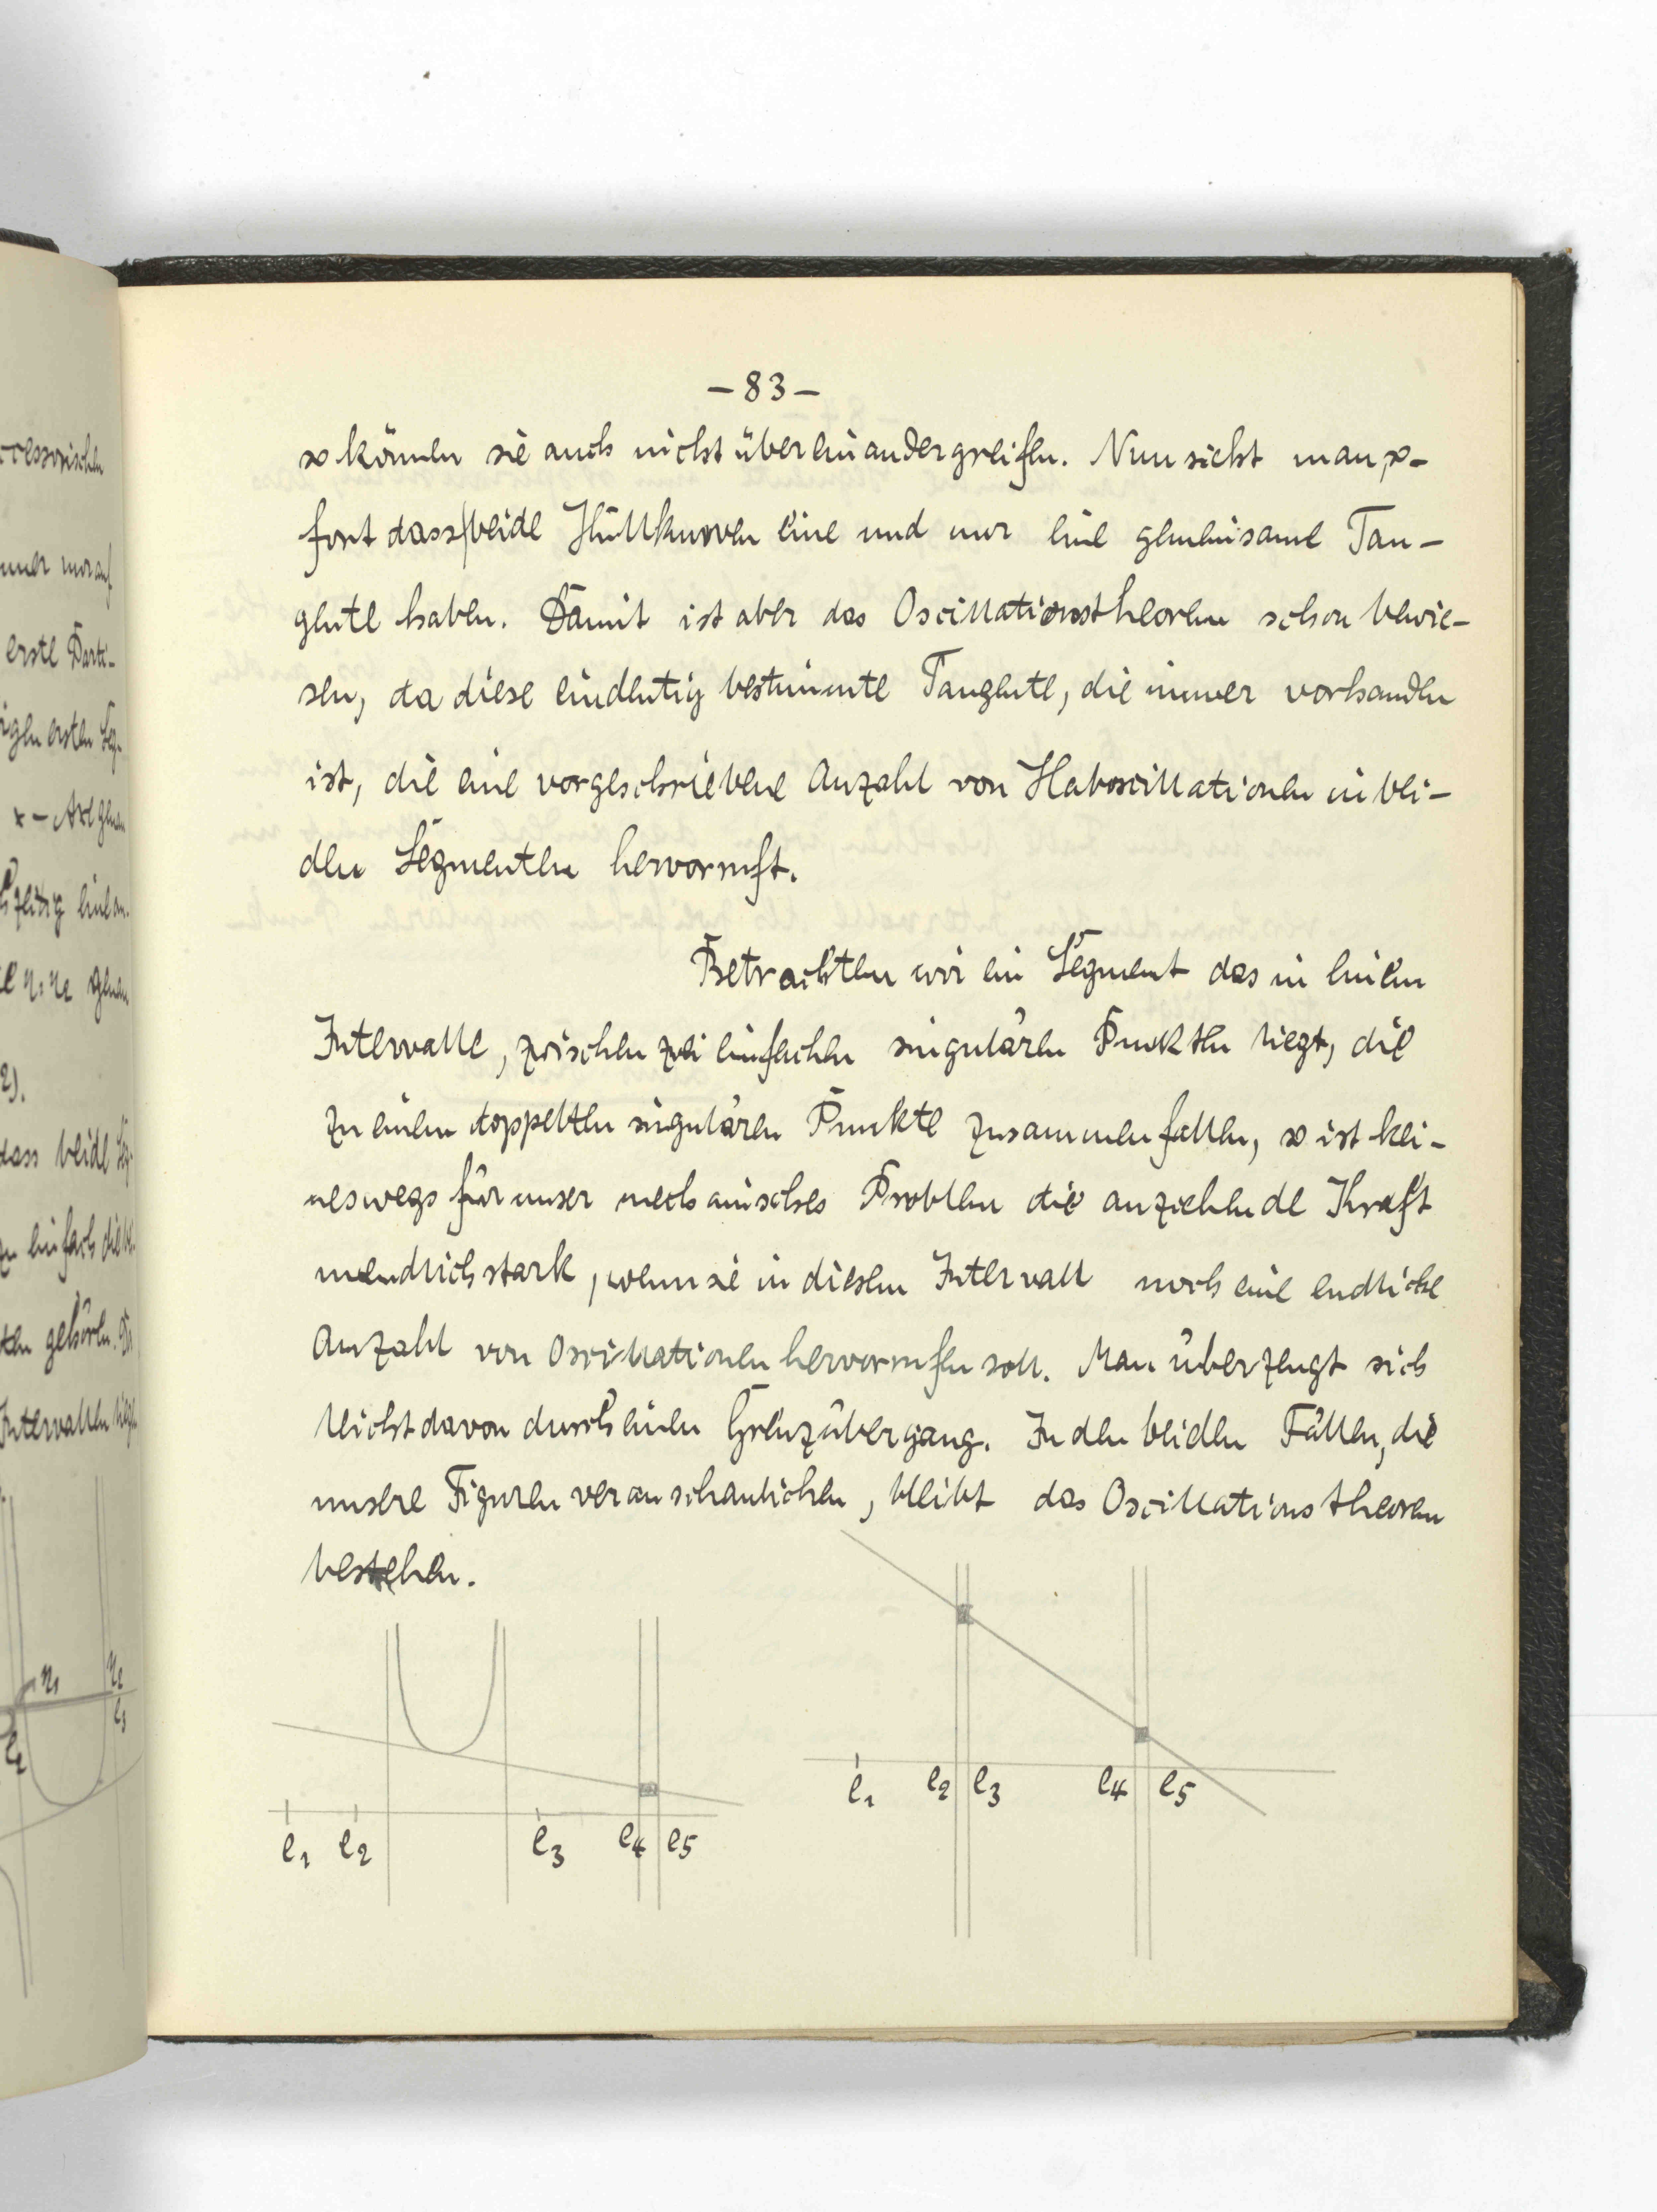 – 83 –
so können sie auch nicht übereinandergreifen. Nun sieht man so-
fort dass beide Hüllkurven eine und nur eine gemeinsame Tan-
gente haben. Damit ist aber das Oscillationstheorem schon bewie-
sen, da diese eindeutig bestimmte Tangente, die immer vorhanden
ist, die eine vorgeschriebene Anzahl von Haboscillationen in bei-
den Segmenten hervorruft.
Betrachten wir ein Segment das in einem
Intervalle, zwischen zwei einfachen singulären Punkten liegt, die
zu einem doppelten singulären Punkte zusammenfallen, so ist kei-
neswegs für unser mechanisches Problem die anziehende Kraft
unendlich stark, wenn sie in diesem Intervall noch eine endliche
Anzahl von Oscillationen hervorrufen soll. Man überzeugt sich
leicht davon durch einen Grenzübergang. In den beiden Fällen, die
unsere Figuren veranschaulichen, bleibt das Oscillationstheorem
bestehen.
e1 e2 e3 e4 e5
e1 e2 e3 e4 e5